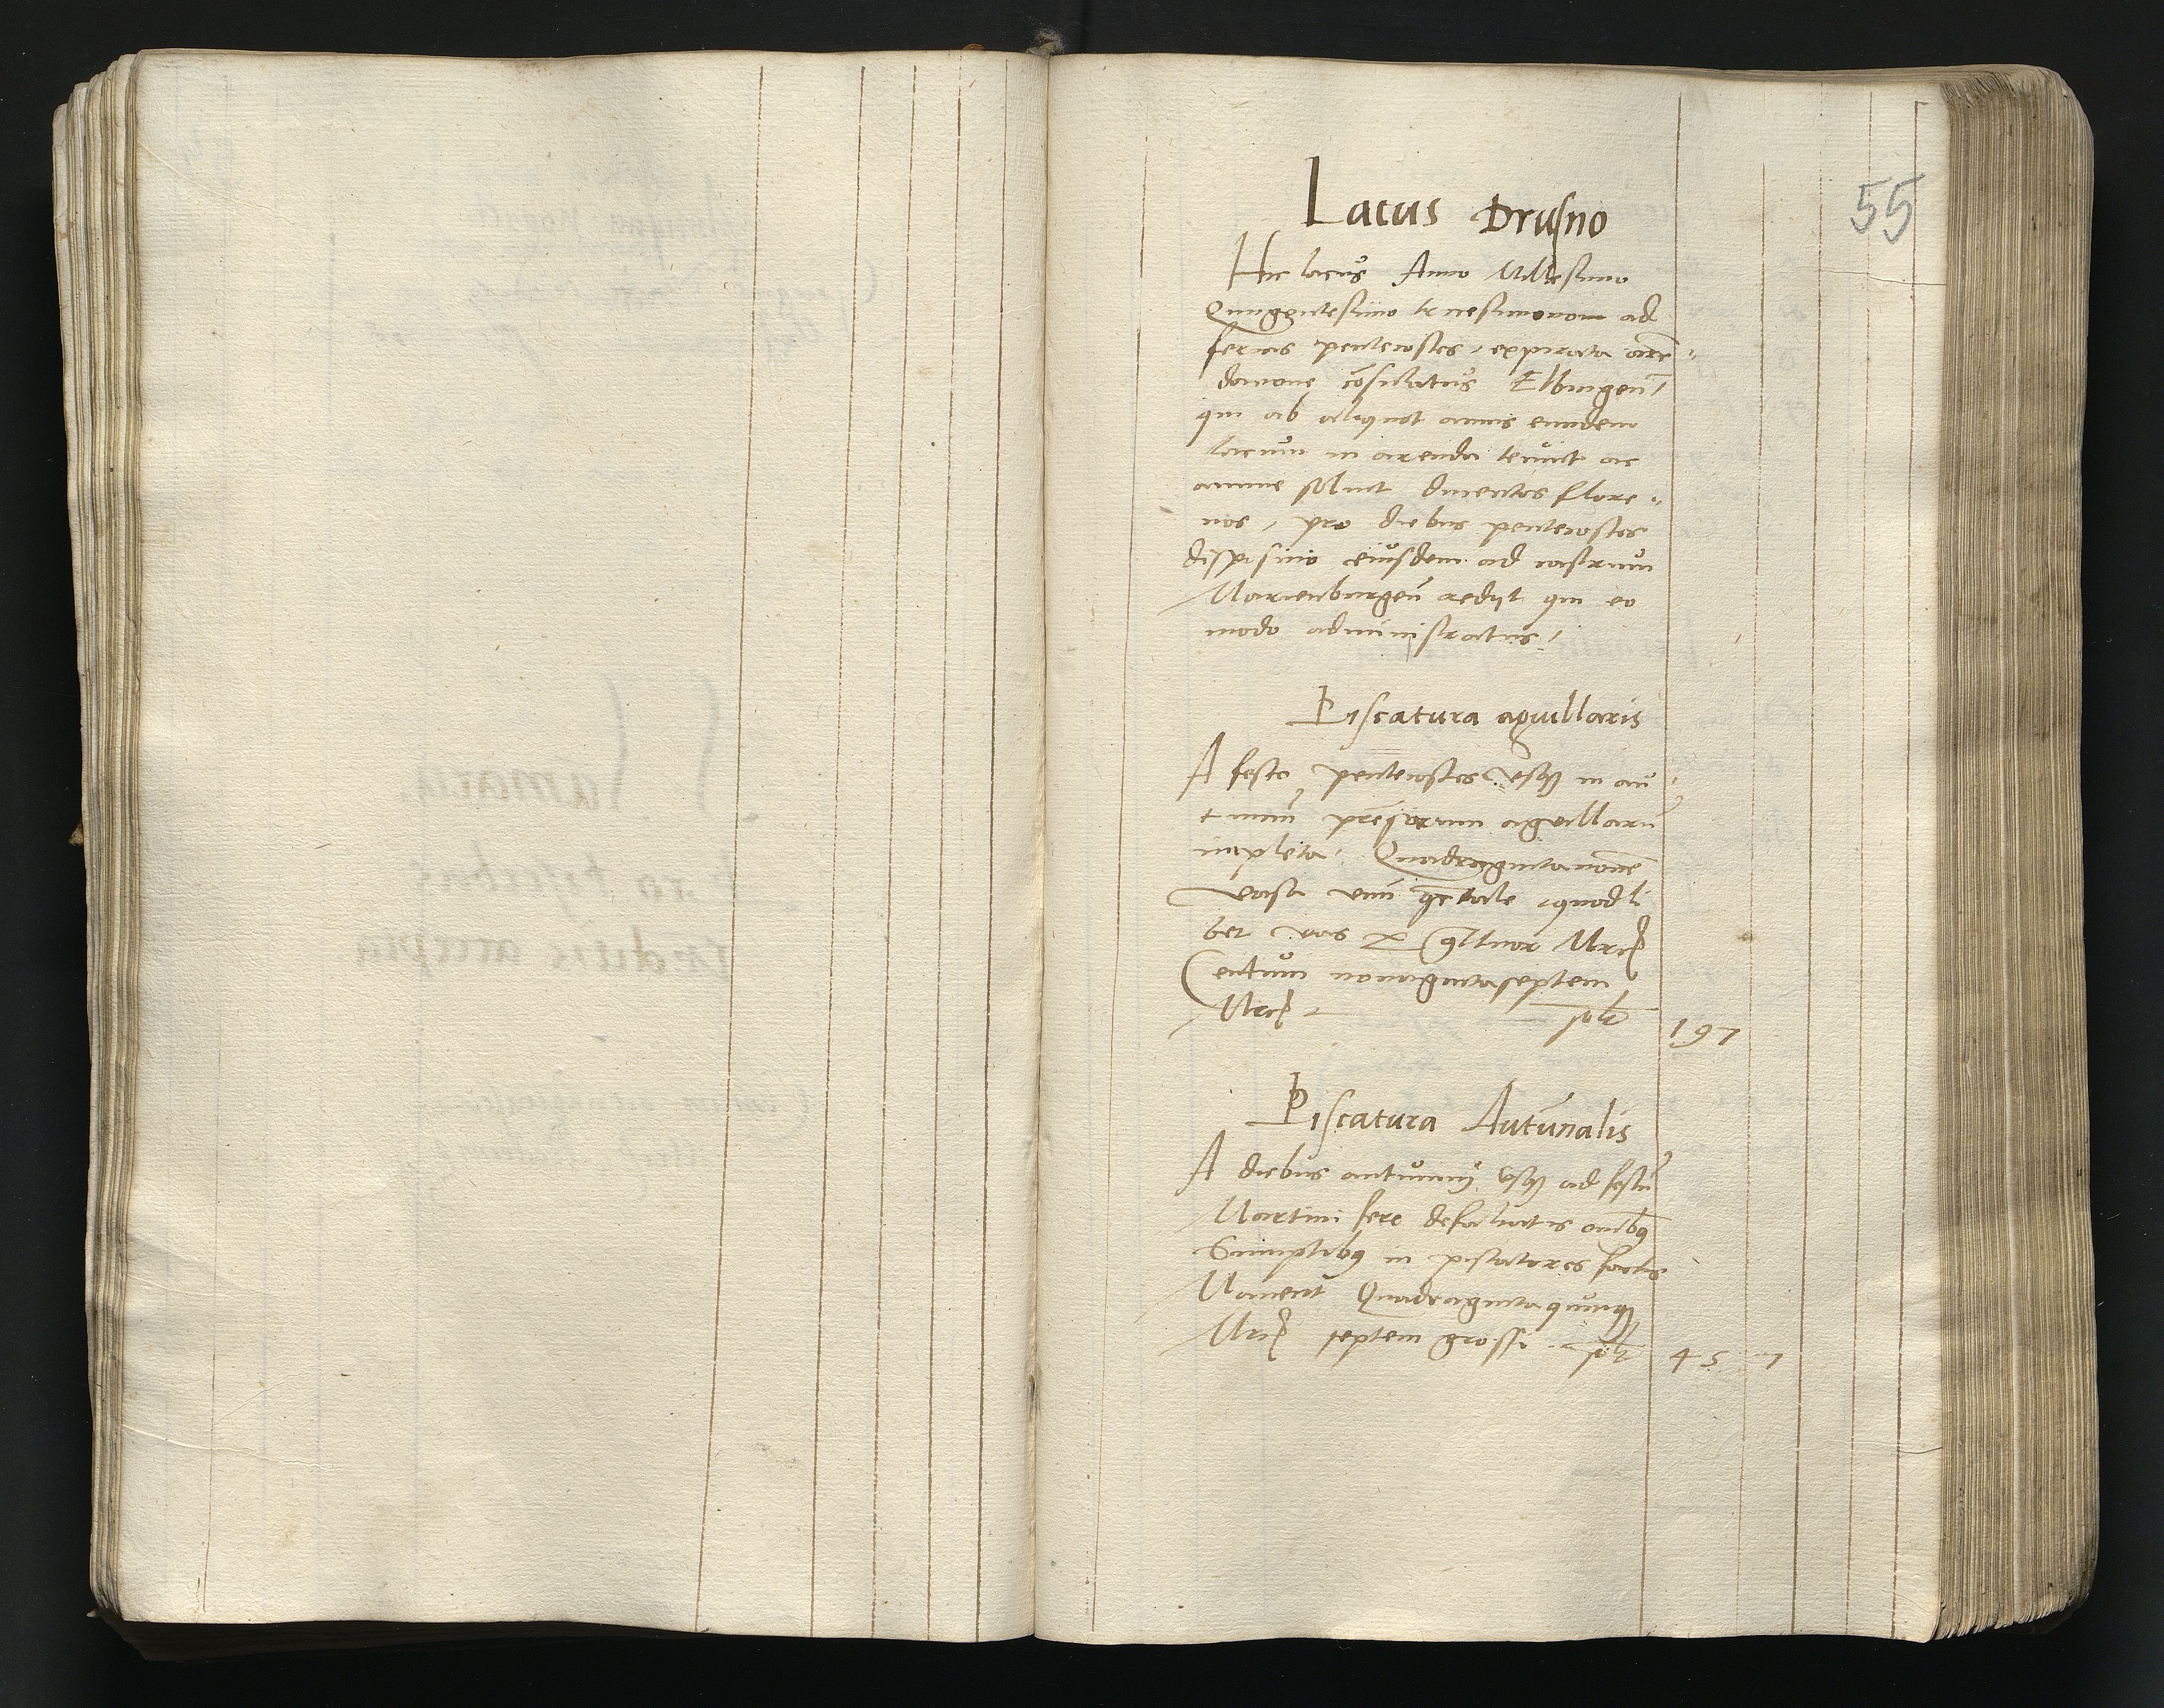 55
Lacus Drusno
Hic lacus Anno Millesimo
Quingentesimo tricesimonono ad
ferias pentecostes, expirata aren„
dacione cōsulatus Elbingeñ,
qui ab aliquot annis eundem
lacum in arenda tenuit ac
annue soluit ducentos flore„
nos, pro diebus pentecostes
disposicio eiusdem ad castrum
Marienburgeñ redijt qui eo
modo administratus,
Piscatura aquillaris
A festo pentecostes usq3 in au
tumnū presarum aguillarū
impleta, Quadragintanouē
vasa unū qrtale, quodli
bet vas per qttuor Mrc
Centum nonagintaseptem
Mrc 197
Piscatura Autūnalis
A diebus autumnj usq3 ad festū
Martini fere defalcatis omībq
Sumptibq in piscatores factis
Manent Quadragintaquinq3
Mrc septem grossi 45 7